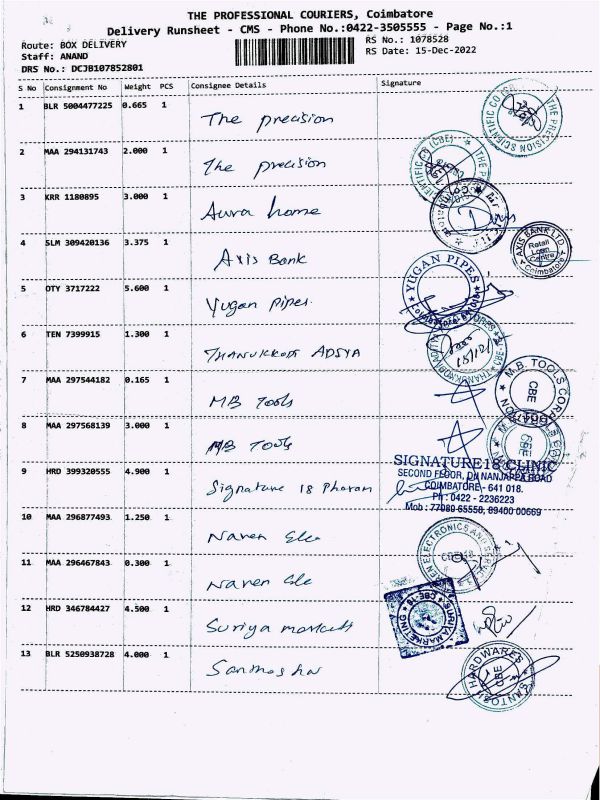 THE PROFESSIONAL COURIERS, Coimbatore
Delivery Runsheet - CMS - Phone No.:0422-3505555 - Page No.:1
Route: BOX DELIVERY
RS No.: 1078528
Staff: ANAND
RS Date: 15-Dec-2022
DRS No.: DCJB107852801
S No Consignment No Weight PCS Consignee Details Signature
1 BLR 5004477225 0.665 1 The precision
THE PRECISION SCIENTIFIC CO (CBE)
2 MAA 294131743 2.000 1 The precision
3 KRR 1180895 3.000 1 Aura home
4 SLM 309420136 3.375 1 Axis Bank
AXIS BANK LTD
Retail
Loan
Centre
Coimbatore
5 OTY 3717222 5.600 1 Yugan pipes
YUGAN PIPES
6 TEN 7399915 1.300 1 THANUKKODI ADSYA
7 MAA 297544182 0.165 1 MB Tools
M.B. TOOLS CORPORATION
CBE
8 MAA 297568139 3.000 1 MB Tools
CBE
9 HRD 399320555 4.900 1 Signature 18 Pharam
SIGNATURE18 CLINIC
SECOND FLOOR, DR NANJAPPA ROAD
COIMBATORE - 641 018.
Ph : 0422 - 2236223
Mob : 77080 65558, 89400 00669
10 MAA 296877493 1.250 1 Naven Ele
ELECTRONICS AND
CBE-18
11 MAA 296467843 0.300 1 Naven Ele
12 HRD 346784427 4.500 1 Suriya markett
SURIYA MARKETING
CBE-18
13 BLR 5250938728 4.000 1 Santhosha
SANTOSH HARDWARES
CBE